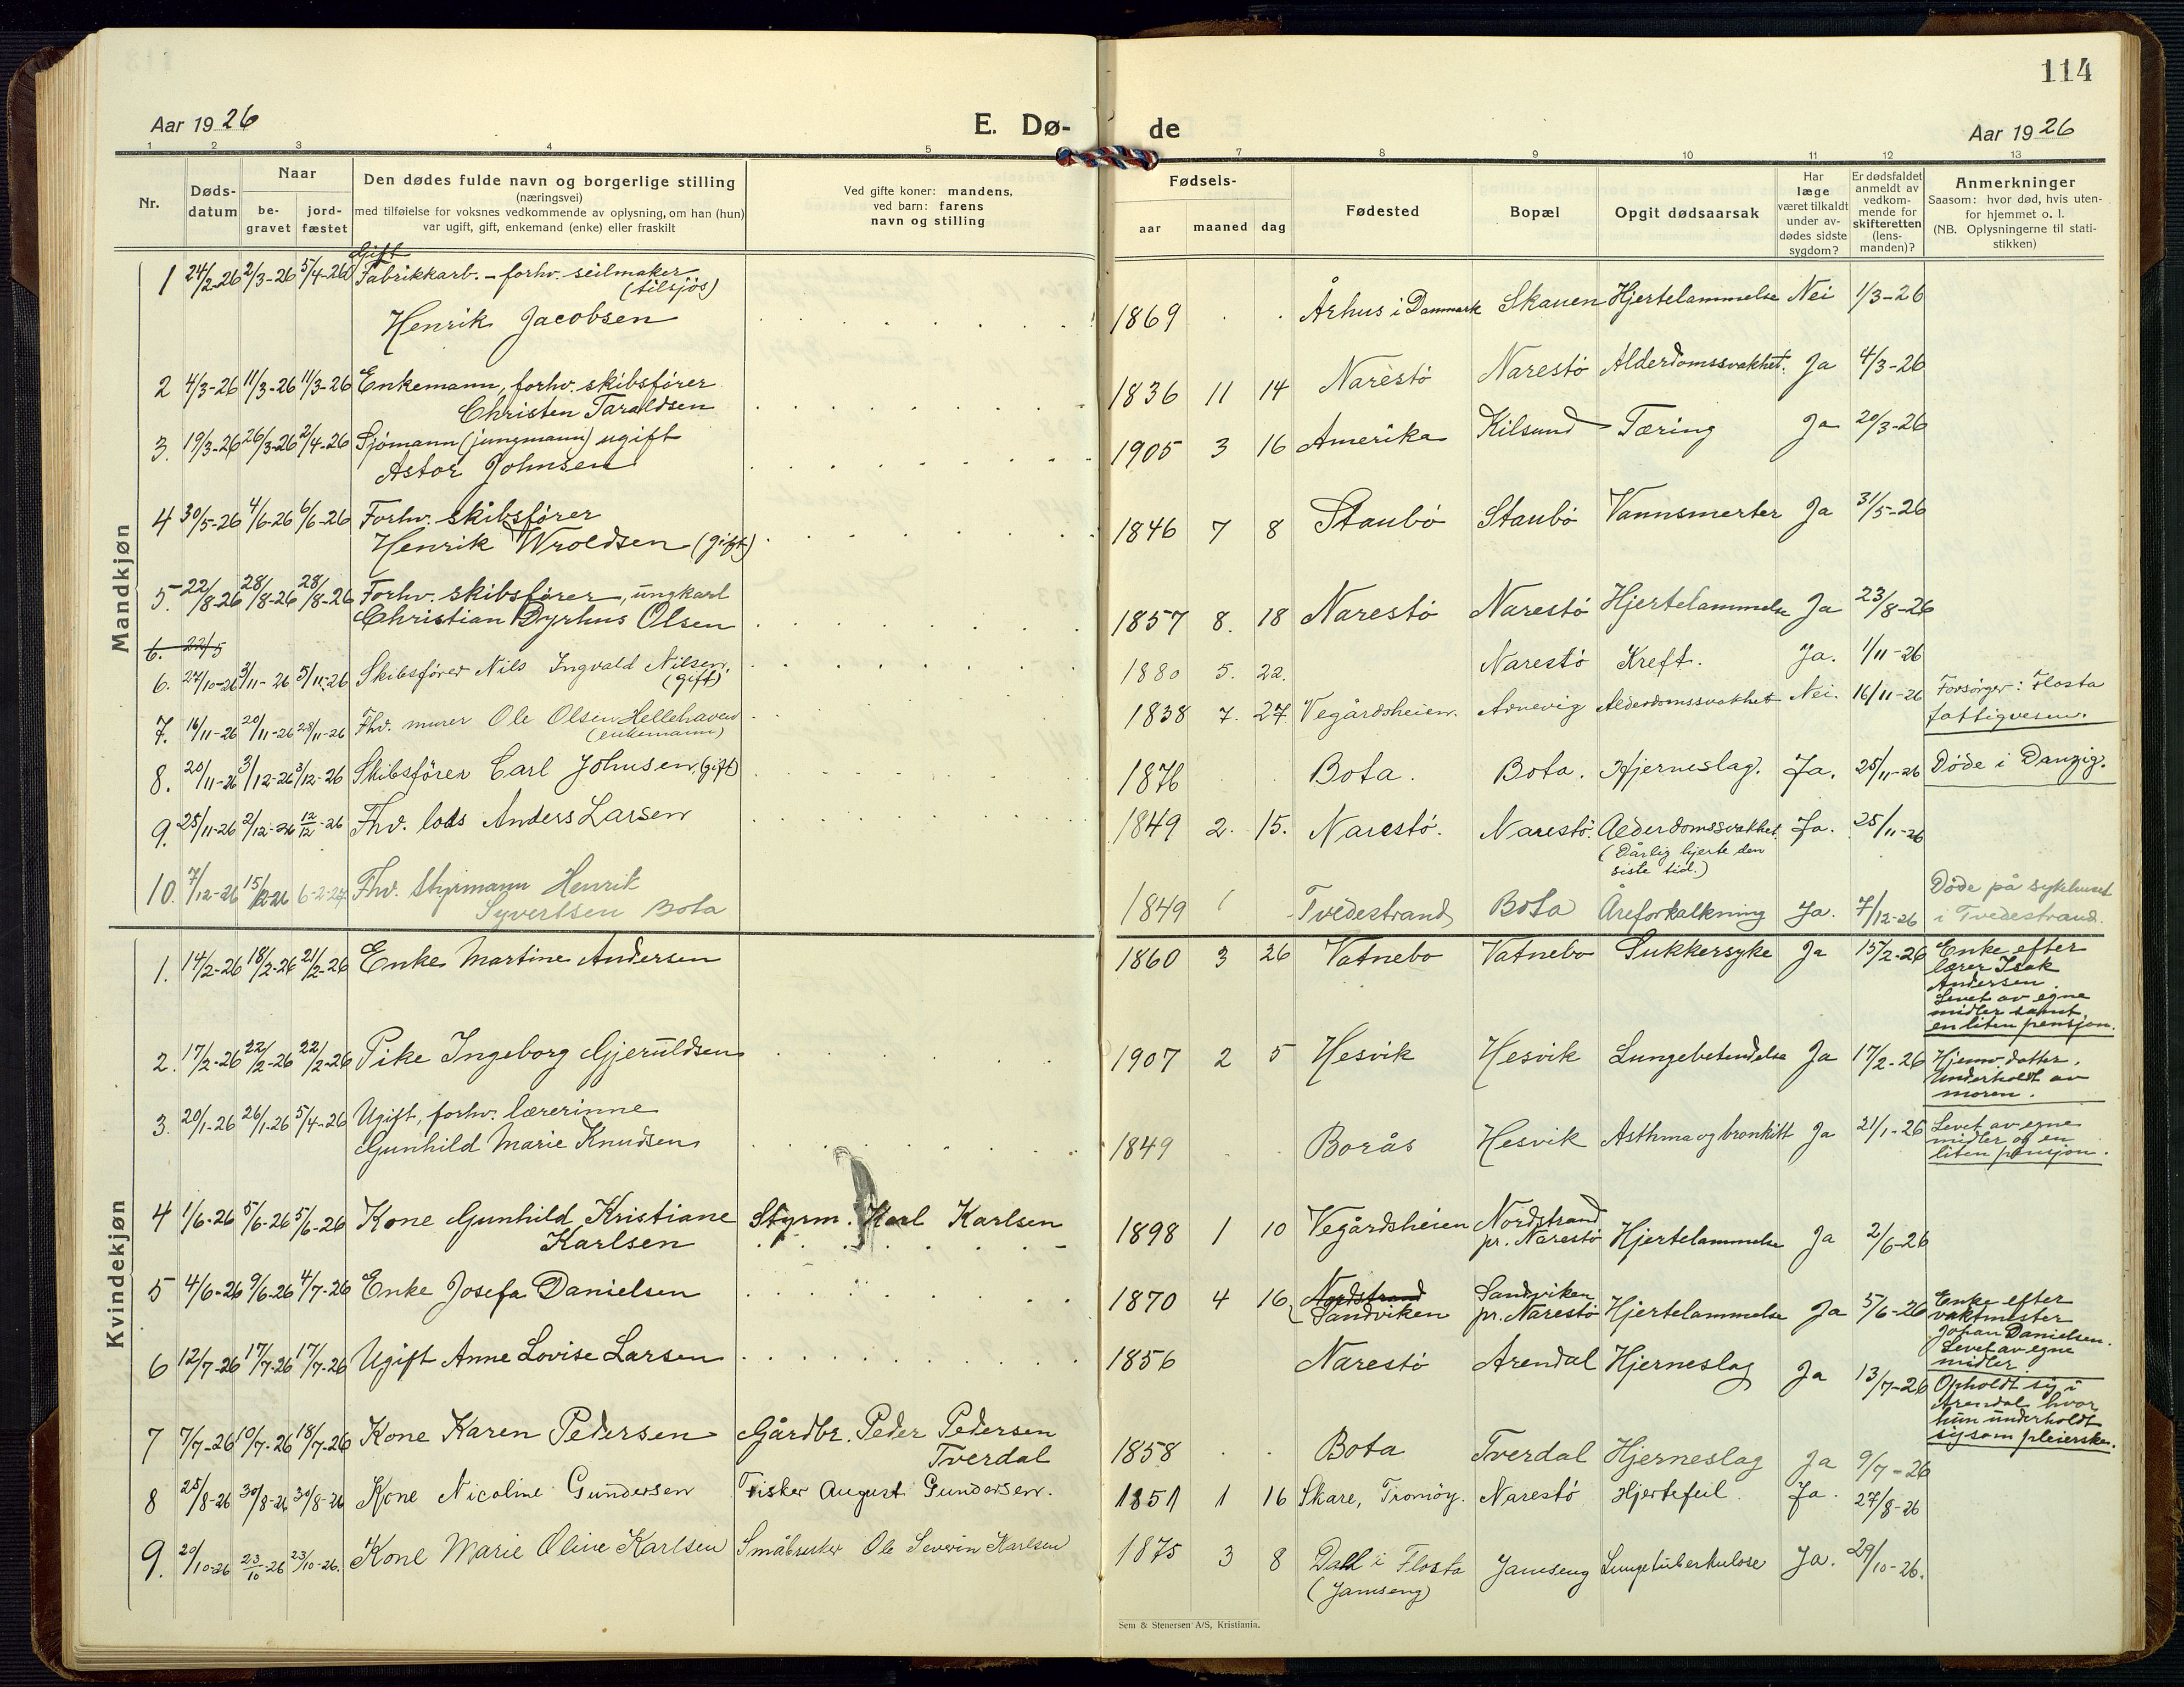 114
Aar 1926
E. Dø-
de
Aar 1926
1 2 3 4 5 7 8 9 10 11 12 13
Nr.
Døds-
datum
Naar
be-
gravet
jord-
fæstet
Den dødes fulde navn og borgerlige stilling
(næringsvei)
med tilføielse for voksnes vedkommende av oplysning, om han (hun)
var ugift, gift, enkemand (enke) eller fraskilt
Ved gifte koner: mandens,
ved barn: farens
navn og stilling
Fødsels-
aar maaned dag
Fødested
Bopæl
Opgit dødsaarsak
Har
læge
været tilkaldt
under av-
dødes sidste
sygdom?
Er dødsfaldet
anmeldt av
vedkom-
mende for
skifteretten
(lens-
manden)?
Anmerkninger
Saasom: hvor død, hvis uten-
for hjemmet o. l.
(NB. Oplysningerne til stati-
stikken)
Mandkjøn
Gift
1 24/2-26 2/3-26 5/4-26 Fabrikkarb. - forhv. seilmaker
(tilsjøs)
Henrik Jacobsen
1869 Århus i Danmark Skauen Hjertelammelse Nei 1/3-26
2 4/3-26 11/3-26 11/3-26 Enkemann, forhv. skibsfører
Christen Taraldsen
1836 11 14 Narestö Narestö Alderdomssvakhet. Ja 4/3-26
3. 19/3-26 26/3-26 2/4-26 Sjømann (jungmann) ugift
Astor Johnsen
1905 3 16 Amerika Kilsund Tæring Ja 20/3-26
4 30/5-26 4/6-26 6/6-26 Forhv. skibsfører
Henrik Wroldsen (gift)
1846 7 8 Staubö Staubö Vannsmerter Ja 31/5-26
5. 22/8-26 28/8-26 28/8-26 Forhv. skibsfører, ungkarl
Christian Dyrhus Olsen
1857 8. 18 Narestö Narestö Hjertelammelse Ja 23/8-26
6. 22/5
6. 27/10-26 3/11-26 5/11-26 Skibsfører Nils Ingvald Nilsen,
(gift)
1880 5. 22. Narestö Kreft. Ja. 1/11-26
7. 16/11-26 20/11-26 28/11-26 Fhv. murer Ole Olsen Hellehaven
(enkemann)
1838 7. 27. Vegårdsheien. Arnevig Alderdomssvakhet Nei. 16/11-26 Forsörger: Flosta
fattigvesen.
8. 20/11-26 3/12-26 3/12-26 Skibsfører Carl Johnsen, (gift)
1876 Bota. Bota. Hjerneslag. Ja. 25/11-26 Döde i Danzig.
9. 25/11-26 2/12-26 12/12-26 Fhv. lods Anders Larsen
1849 2. 15. Narestö. Narestö. Alderdomssvakhet. Ja. 25/11-26
(Dårlig hjerte den
siste tid.)
10. 7/12-26 15/12-26 6-2-27 Fhv. Styrmann Henrik
Syvertsen Bota
1849 1 Tvedestrand Bota Åreforkalkning Ja. 7/12-26 Döde på sykehuset
i Tvedestrand.
Kvindekjøn
1. 14/2-26 18/2-26 21/2-26 Enke Martine Andersen
1860 3 26 Vatnebo Vatnebo Sukkersyke Ja 15/2-26 Enke efter
lærer Isak
Andersen.
Levet av egne
midler samt
en liten pensjon.
2. 17/2-26 22/2-26 22/2-26 Pike Ingeborg Gjeruldsen
1907 2 5 Hesvik Hesvik Lungebetendelse Ja 17/2-26 Hjemv. datter.
Underholdt av
moren.
3. 20/1-26 26/1-26 5/4-26 Ugift, forhv. lærerinne
Gunhild Marie Knudsen
1849 Borås Hesvik Asthma og bronkitt Ja 21/1-26 Levet av egne
midler og en
liten pensjon.
4 1/6-26 5/6-26 5/6-26 Kone Gunhild Kristiane
Karlsen
Styrm. Karl Karlsen
1898 1 10 Vegårdsheien Nordstrand
pr. Narestö Hjertelammelse Ja 2/6-26
5 4/6-26 9/6-26 4/7-26 Enke Josefa Danielsen
1870 4 16 Nordstrand
Sandviken
Sandviken
pr. Narestö Hjertelammelse Ja 5/6-26 Enke efter
vaktmester
Johan Danielsen.
Levet av egne
midler.
6 12/7-26 17/7-26 17/7-26 Ugift Anne Lovise Larsen
1856 Narestö Arendal Hjerneslag Ja 13/7-26 Opholdt sig i
Arendal hvor
hun underholdt
sig som pleierske.
7 7/7-26 10/7-26 18/7-26 Kone Karen Pedersen Gårdbr. Peder Pedersen
Tverdal
1858 Bota Tverdal Hjerneslag Ja 9/7-26
8 25/8-26 30/8-26 30/8-26 Kone Nicoline Gundersen Fisker August Gundersen.
1851 1 16 Skare, Tromöy. Narestö Hjertefeil. Ja. 27/8-26
9. 20/10-26 23/10-26 23/10-26. Kone Marie Oline Karlsen Småbruker Ole Severin Karlsen
1875 3 8 Dall i Flosta
(Jamseng)
Jamseng Lungetuberkulose Ja. 29/10-26.
Sem & Stenersen A/S, Kristiania.